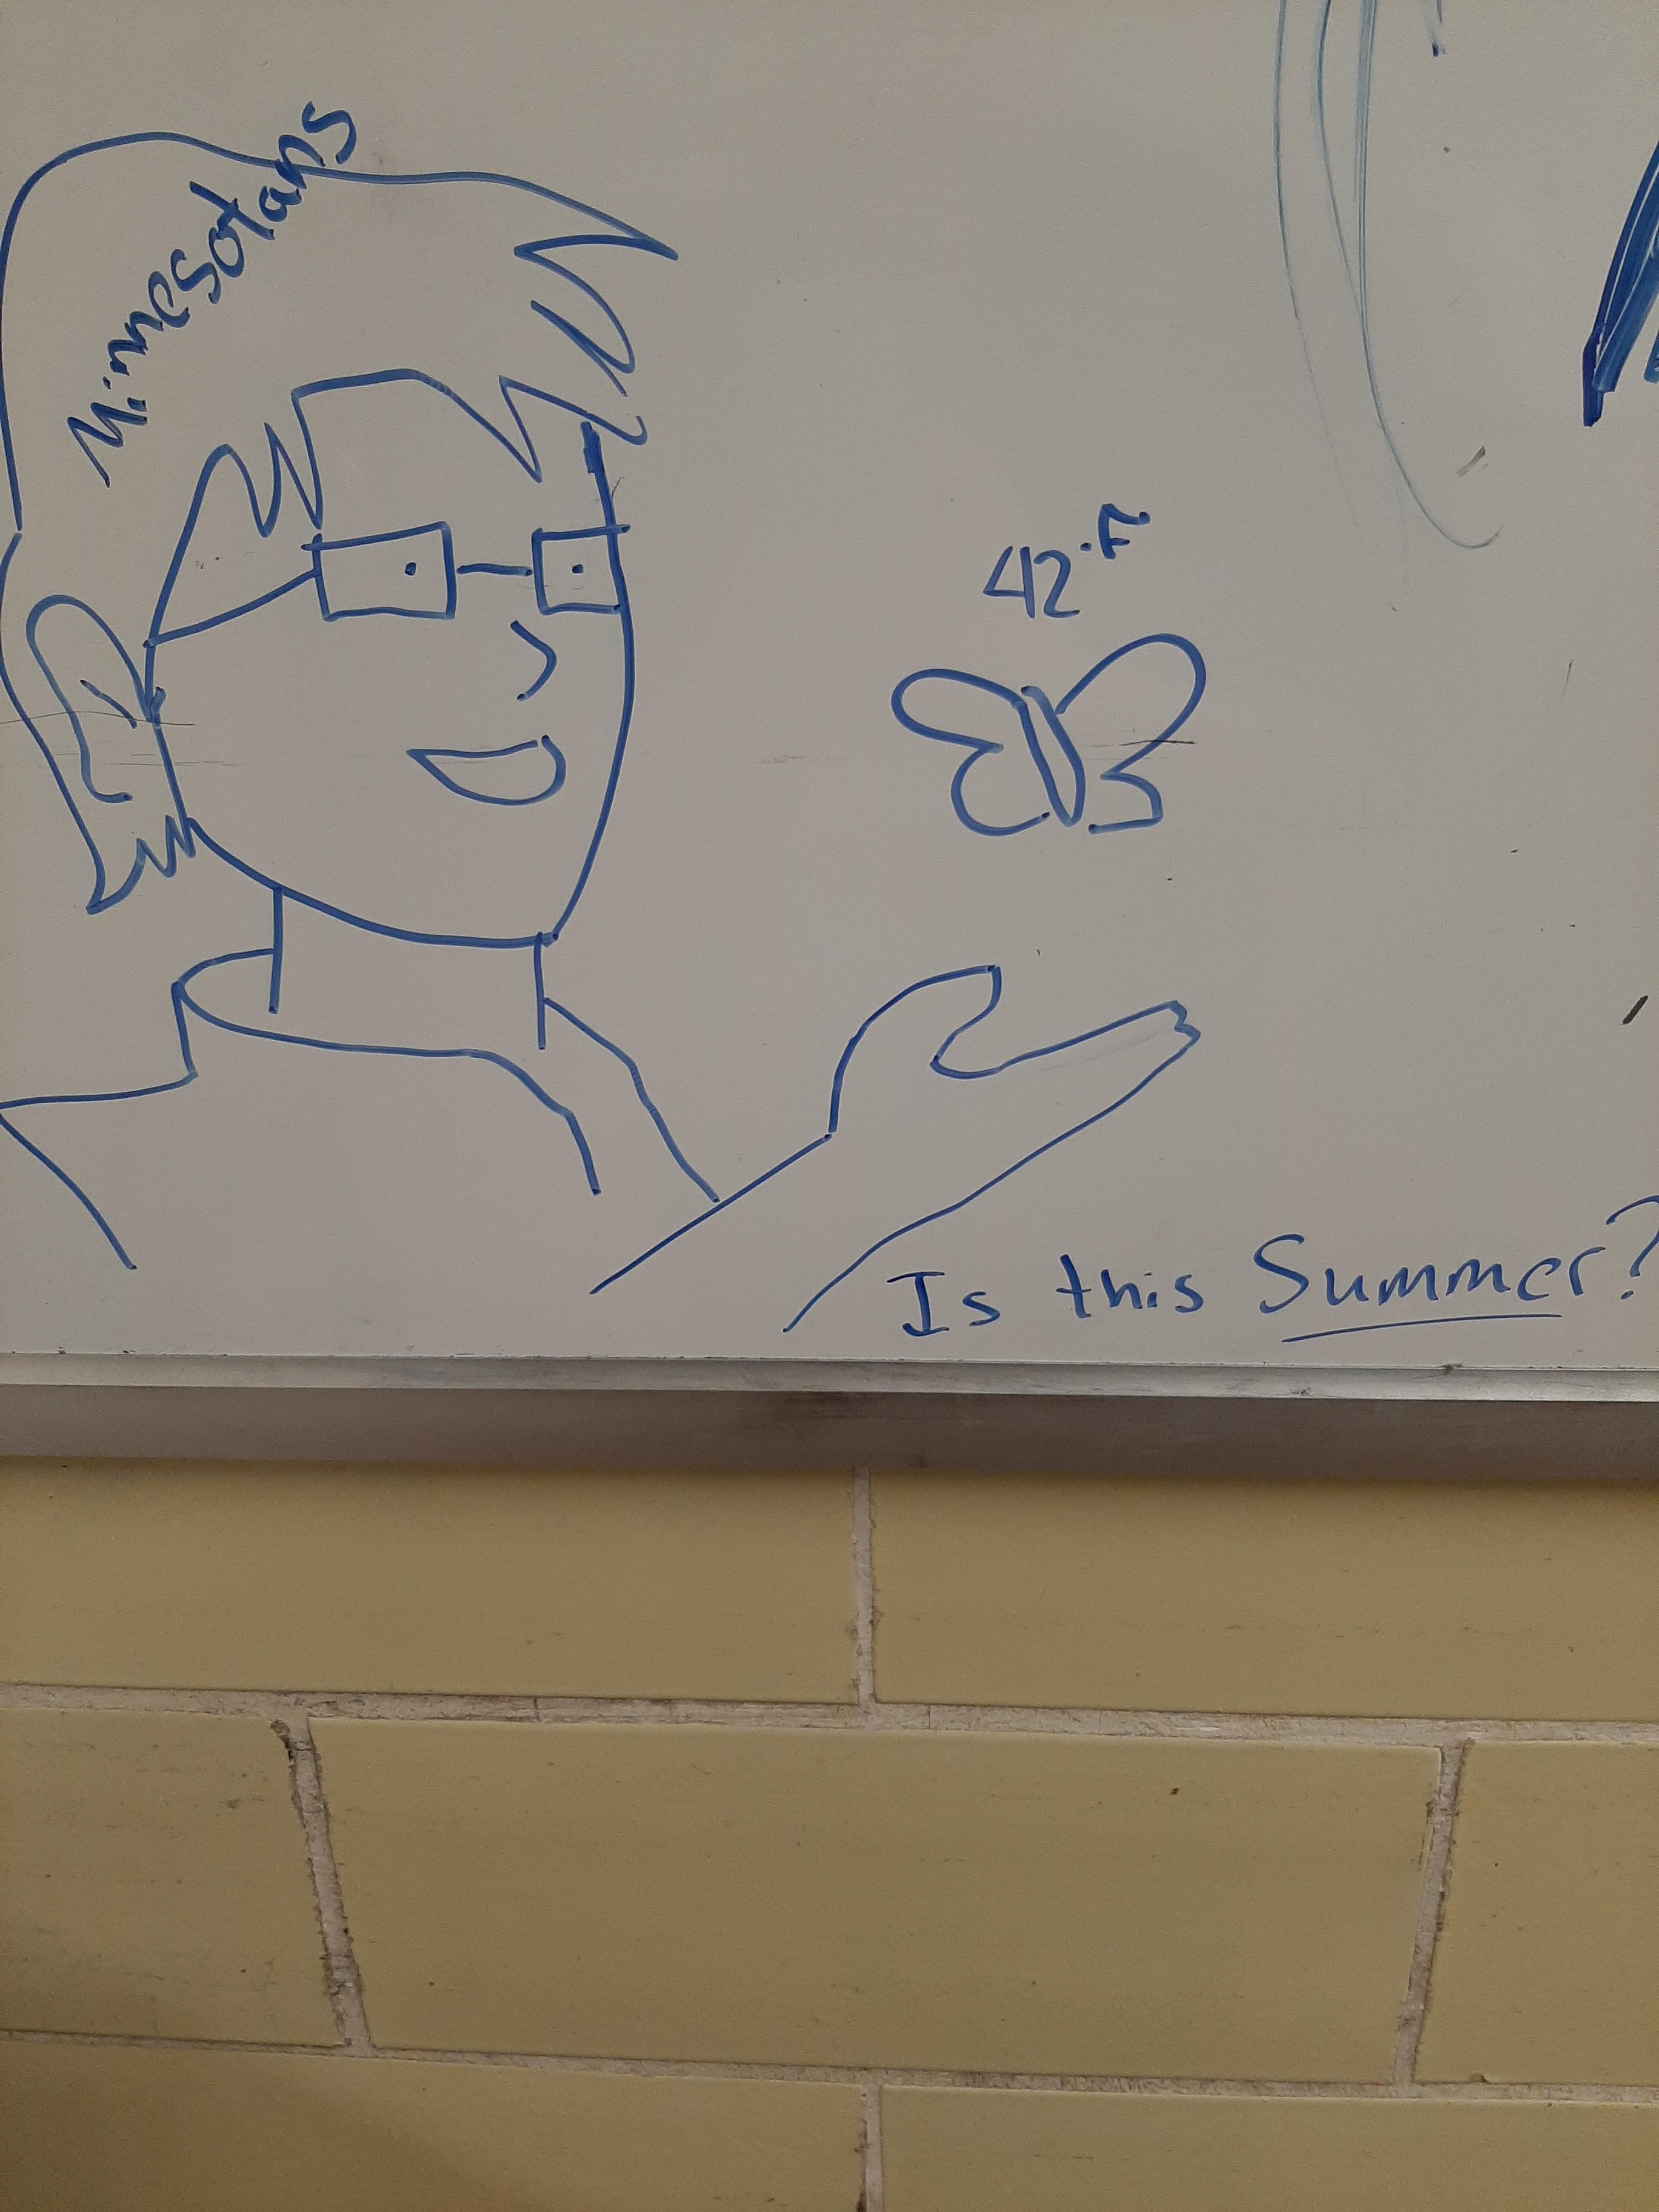 Minnesotans
42°F
Is this Summer?